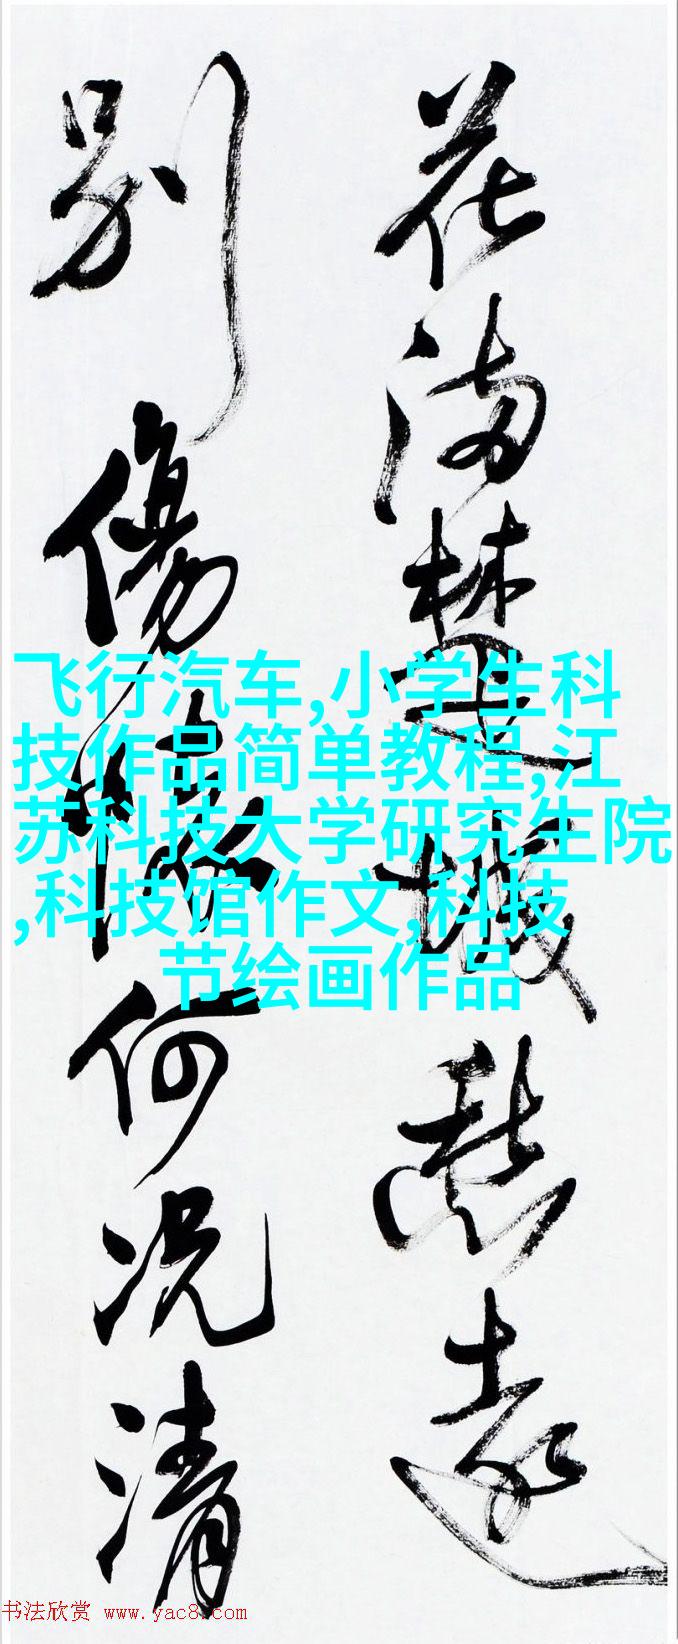 花满楚城愁远
别傷
何况清
飞行汽车,小学生科
技作品简单教程,江
苏科技大学研究生院
,科技馆作文,科技
节绘画作品
书法欣赏 www.yac8.com